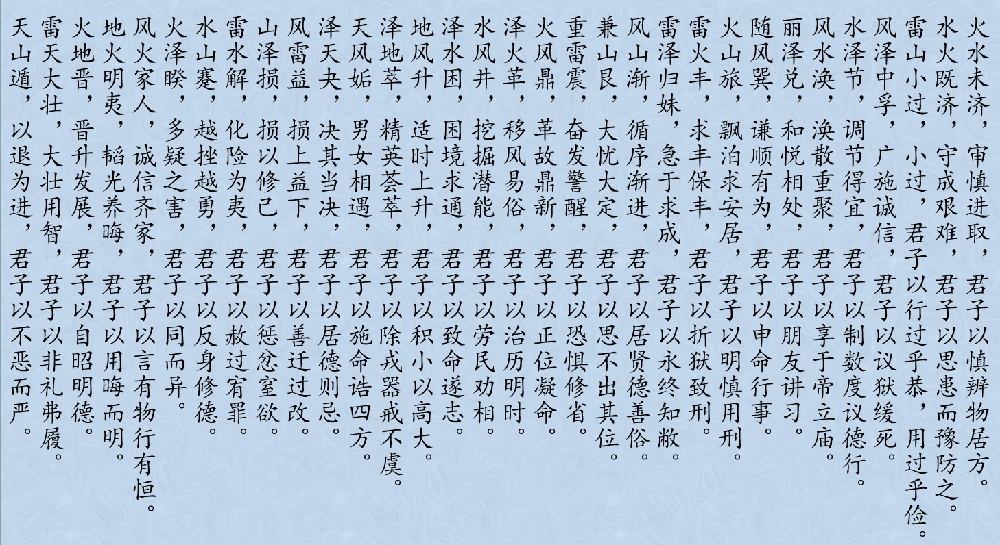 天山遁，以退为进，君子以不恶而严。
雷天大壮，大壮用智，君子以非礼弗履。
火地晋，晋升发展，君子以自昭明德。
地火明夷，韬光养晦，君子以用晦而明。
风火家人，诚信齐家，君子以言有物行有恒。
火泽睽，多疑之害，君子以同而异。
水山蹇，越挫越勇，君子以反身修德。
雷水解，化险为夷，君子以赦过宥罪。
山泽损，损以修己，君子以惩忿窒欲。
风雷益，损上益下，君子以善迁过改。
泽天夬，决其当决，君子以居德则忌。
天风姤，男女相遇，君子以施命诰四方。
泽地萃，精英荟萃，君子以除戎器戒不虞。
地风升，适时上升，君子以积小以高大。
泽水困，困境求通，君子以致命遂志。
水风井，挖掘潜能，君子以劳民劝相。
泽火革，移风易俗，君子以治历明时。
火风鼎，革故鼎新，君子以正位凝命。
重雷震，奋发警醒，君子以恐惧修省。
兼山艮，大忧大定，君子以思不出其位。
风山渐，循序渐进，君子以居贤德善俗。
雷泽归妹，急于求成，君子以永终知敝。
雷火丰，求丰保丰，君子以折狱致刑。
火山旅，飘泊求安居，君子以明慎用刑。
随风巽，谦顺有为，君子以申命行事。
丽泽兑，和悦相处，君子以朋友讲习。
风水涣，涣散重聚，君子以享于帝立庙。
水泽节，调节得宜，君子以制数度议德行。
风泽中孚，广施诚信，君子以议狱缓死。
雷山小过，小过，君子以行过乎恭，用过乎俭。
水火既济，守成艰难，君子以思患而豫防之。
火水未济，审慎进取，君子以慎辨物居方。